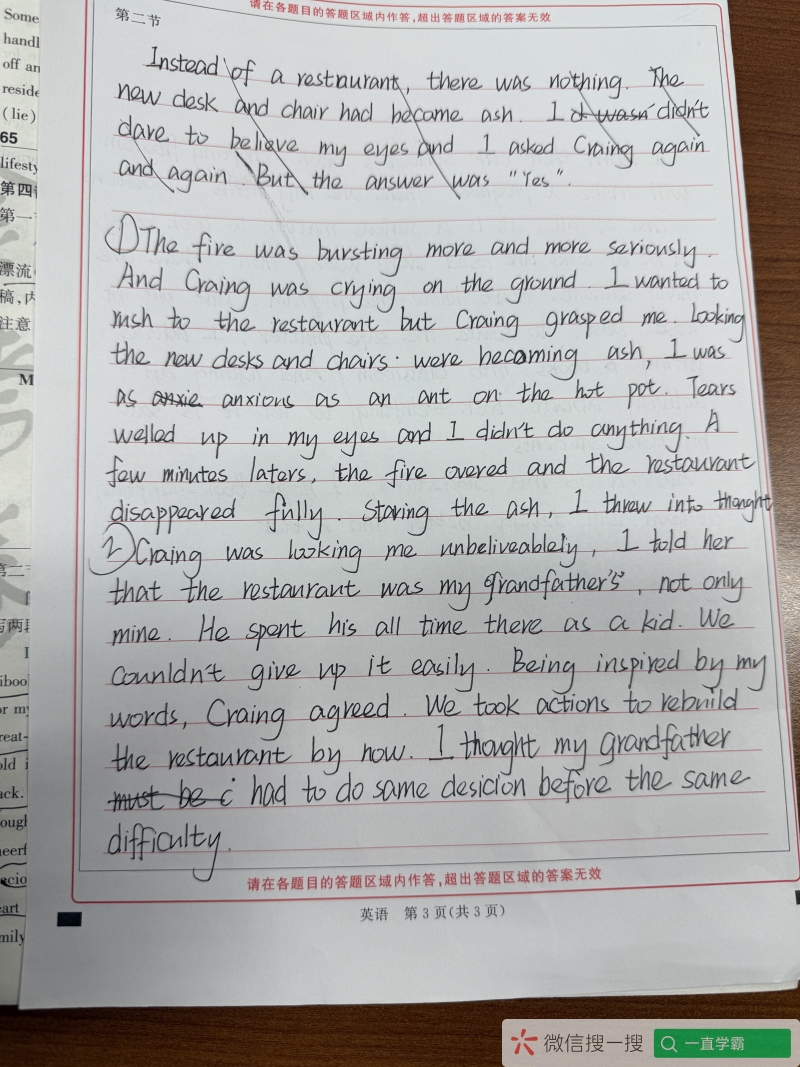 请在各题目的答题区域内作答,超出答题区域的答案无效
第二节
Instead of a restaurant, there was nothing. The
new desk and chair had become ash. I d wasn' didn't
dare to believe my eyes and I asked Craing again
and again. But the answer was "Yes".
①The fire was bursting more and more seriously.
And Craing was crying on the ground. I wanted to
rush to the restaurant but Craing grasped me. Looking
the new desks and chairs were becoming ash, I was
as anxie anxious as an ant on the hot pot. Tears
welled up in my eyes and I didn't do anything. A
few minutes laters, the fire overed and the restaurant
disappeared fully. Staring the ash, I threw into thought
②Craing was looking me unbeliveablely, I told her
that the restaurant was my grandfather's, not only
mine. He spent his all time there as a kid. We
counldn't give up it easily. Being inspired by my
words, Craing agreed. We took actions to rebuild
the restaurant by now. I thought my grandfather
must be i had to do same desicion before the same
difficulty.
请在各题目的答题区域内作答,超出答题区域的答案无效
英语 第3页(共3页)
Some
handl
off an
reside
(lie)
65
lifesty
第四
第一
漂流
稿,内
注意
M
第二
写两段
I
iboo
or my
reat-
old i
ack.
ough
neerf
ecio
art
mily
微信搜一搜
一直学霸